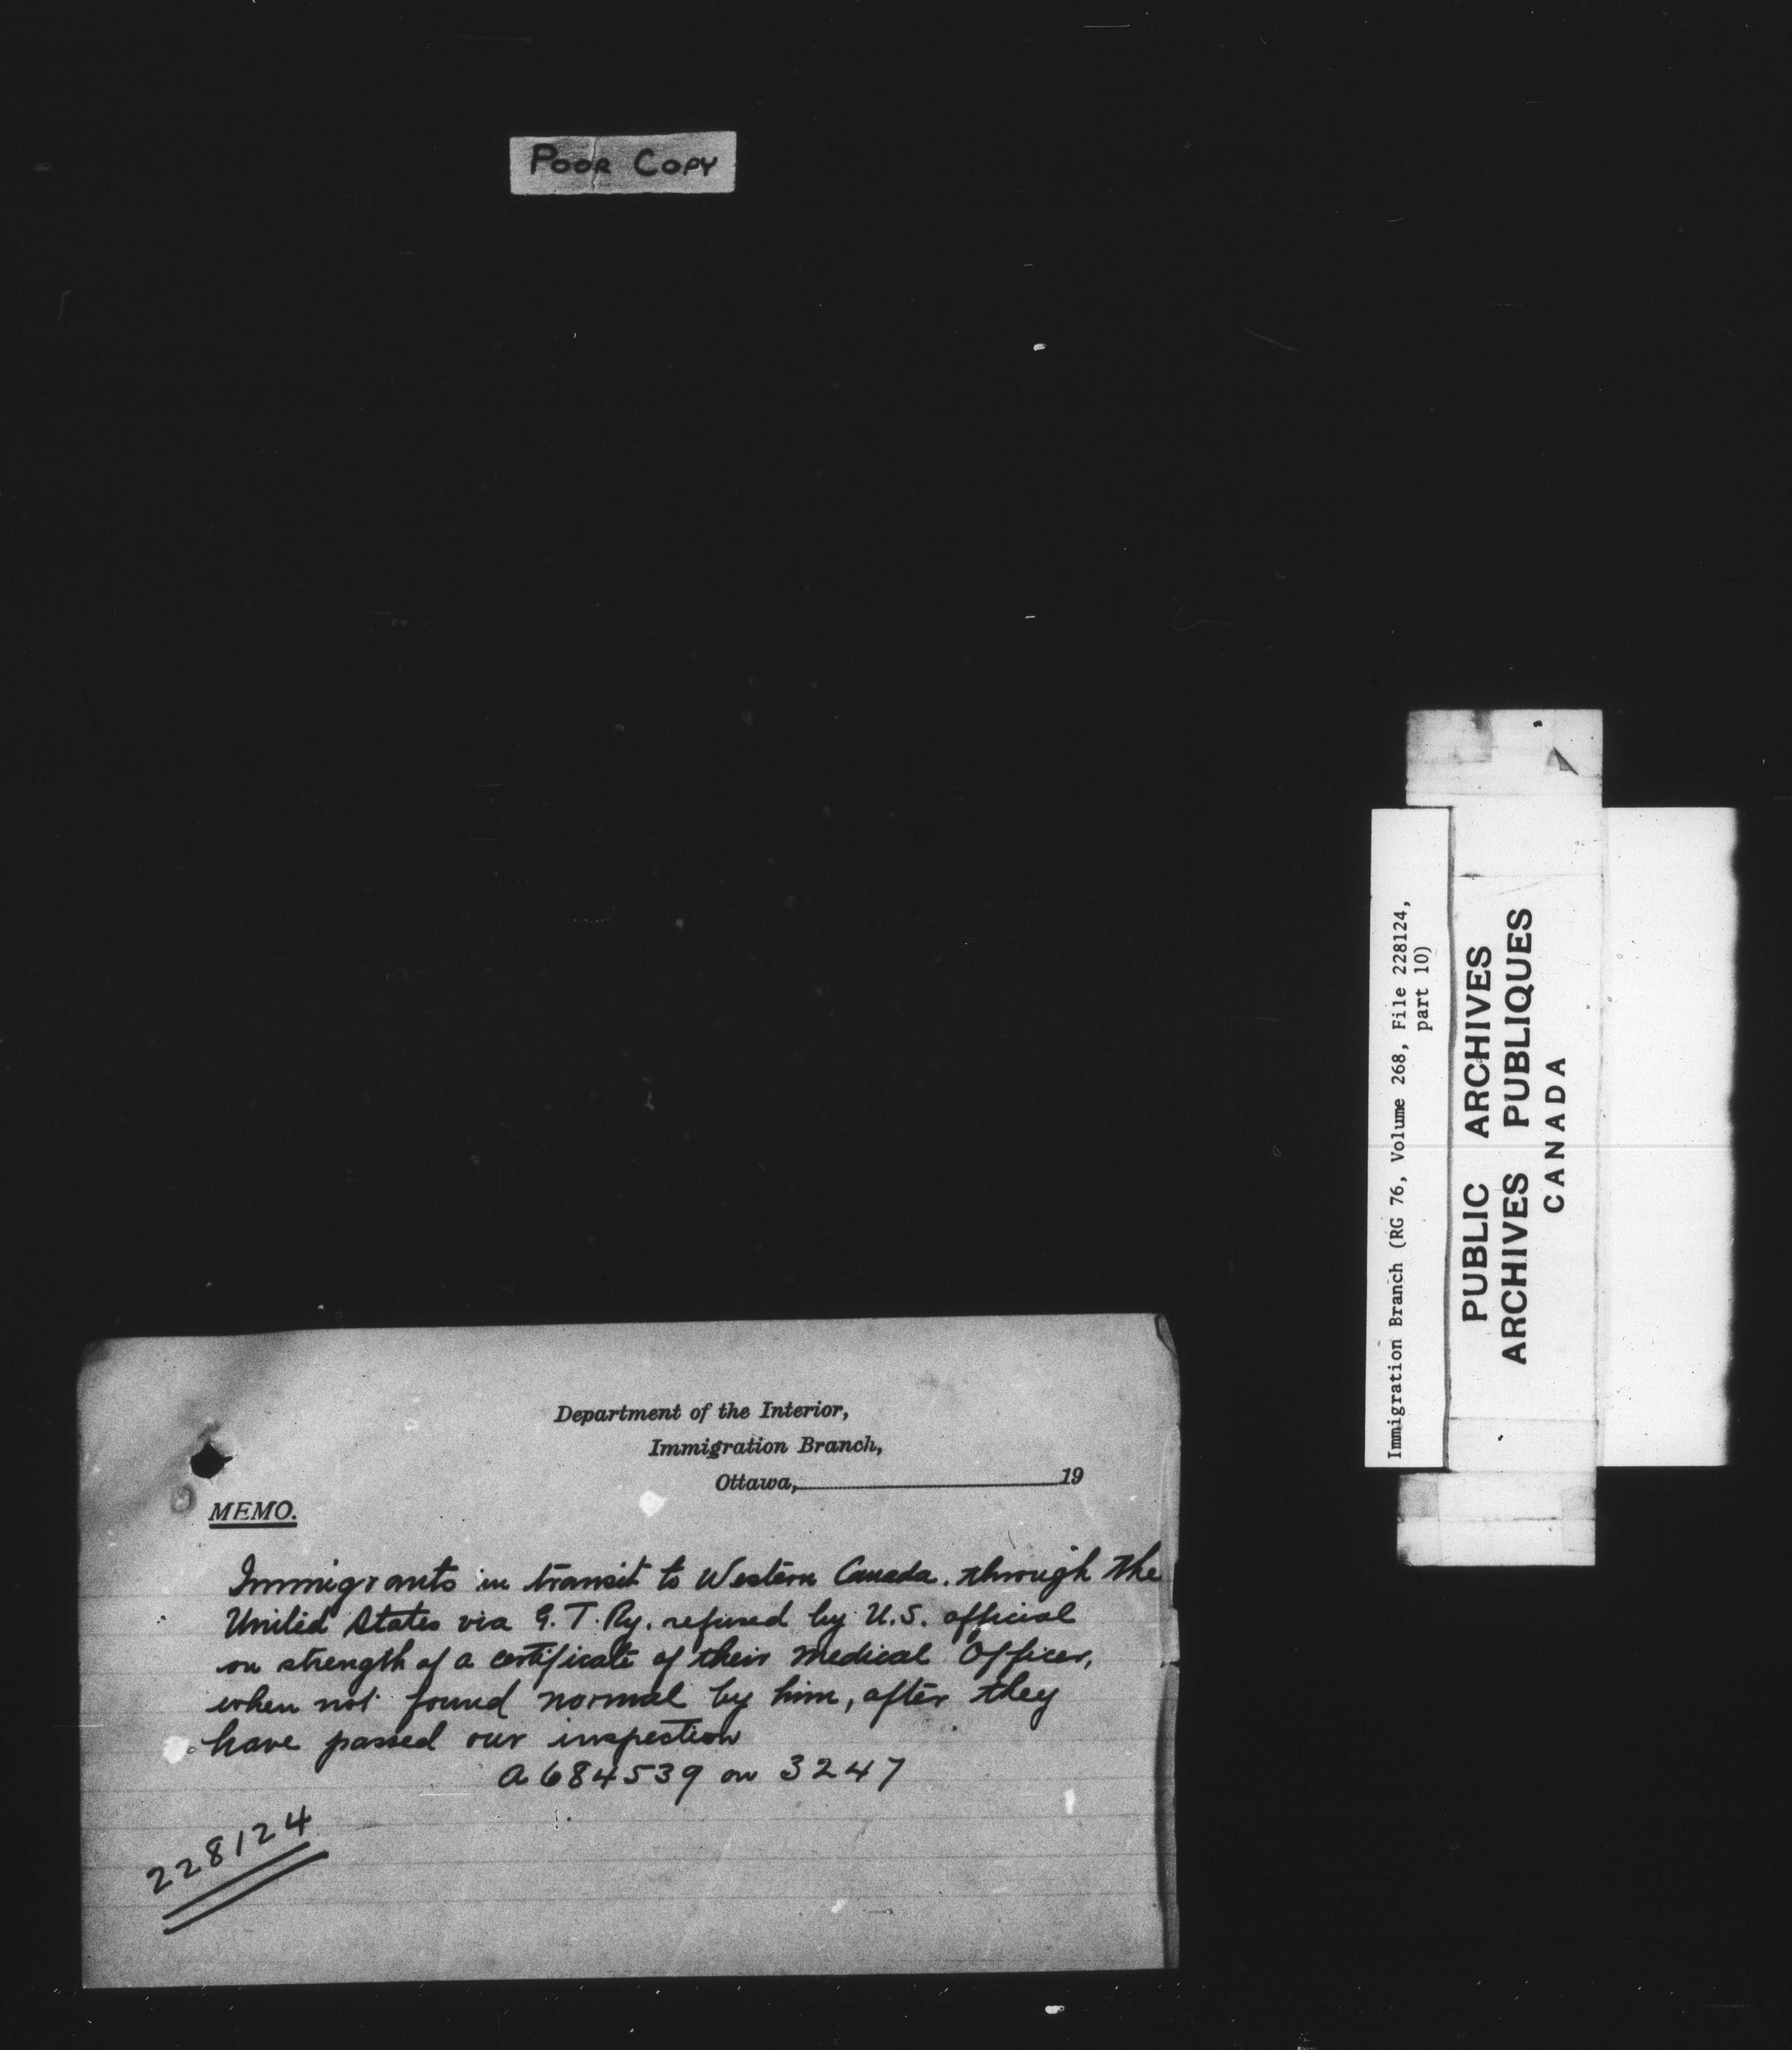 POOR COPY
Department of the Interior,
Immigration Branch,
Ottawa, 19
MEMO.
Immigrants in transit to Western Canada. through the
United States via G. T. Ry. refused by U.S. official
on strength of a certificate of their Medical Officer,
when not found normal by him, after they
have passed our inspection
a 684539 on 3247
228124
Immigration Branch (RG 76, Volume 268, File 228124,
part 10)
PUBLIC ARCHIVES
ARCHIVES PUBLIQUES
CANADA